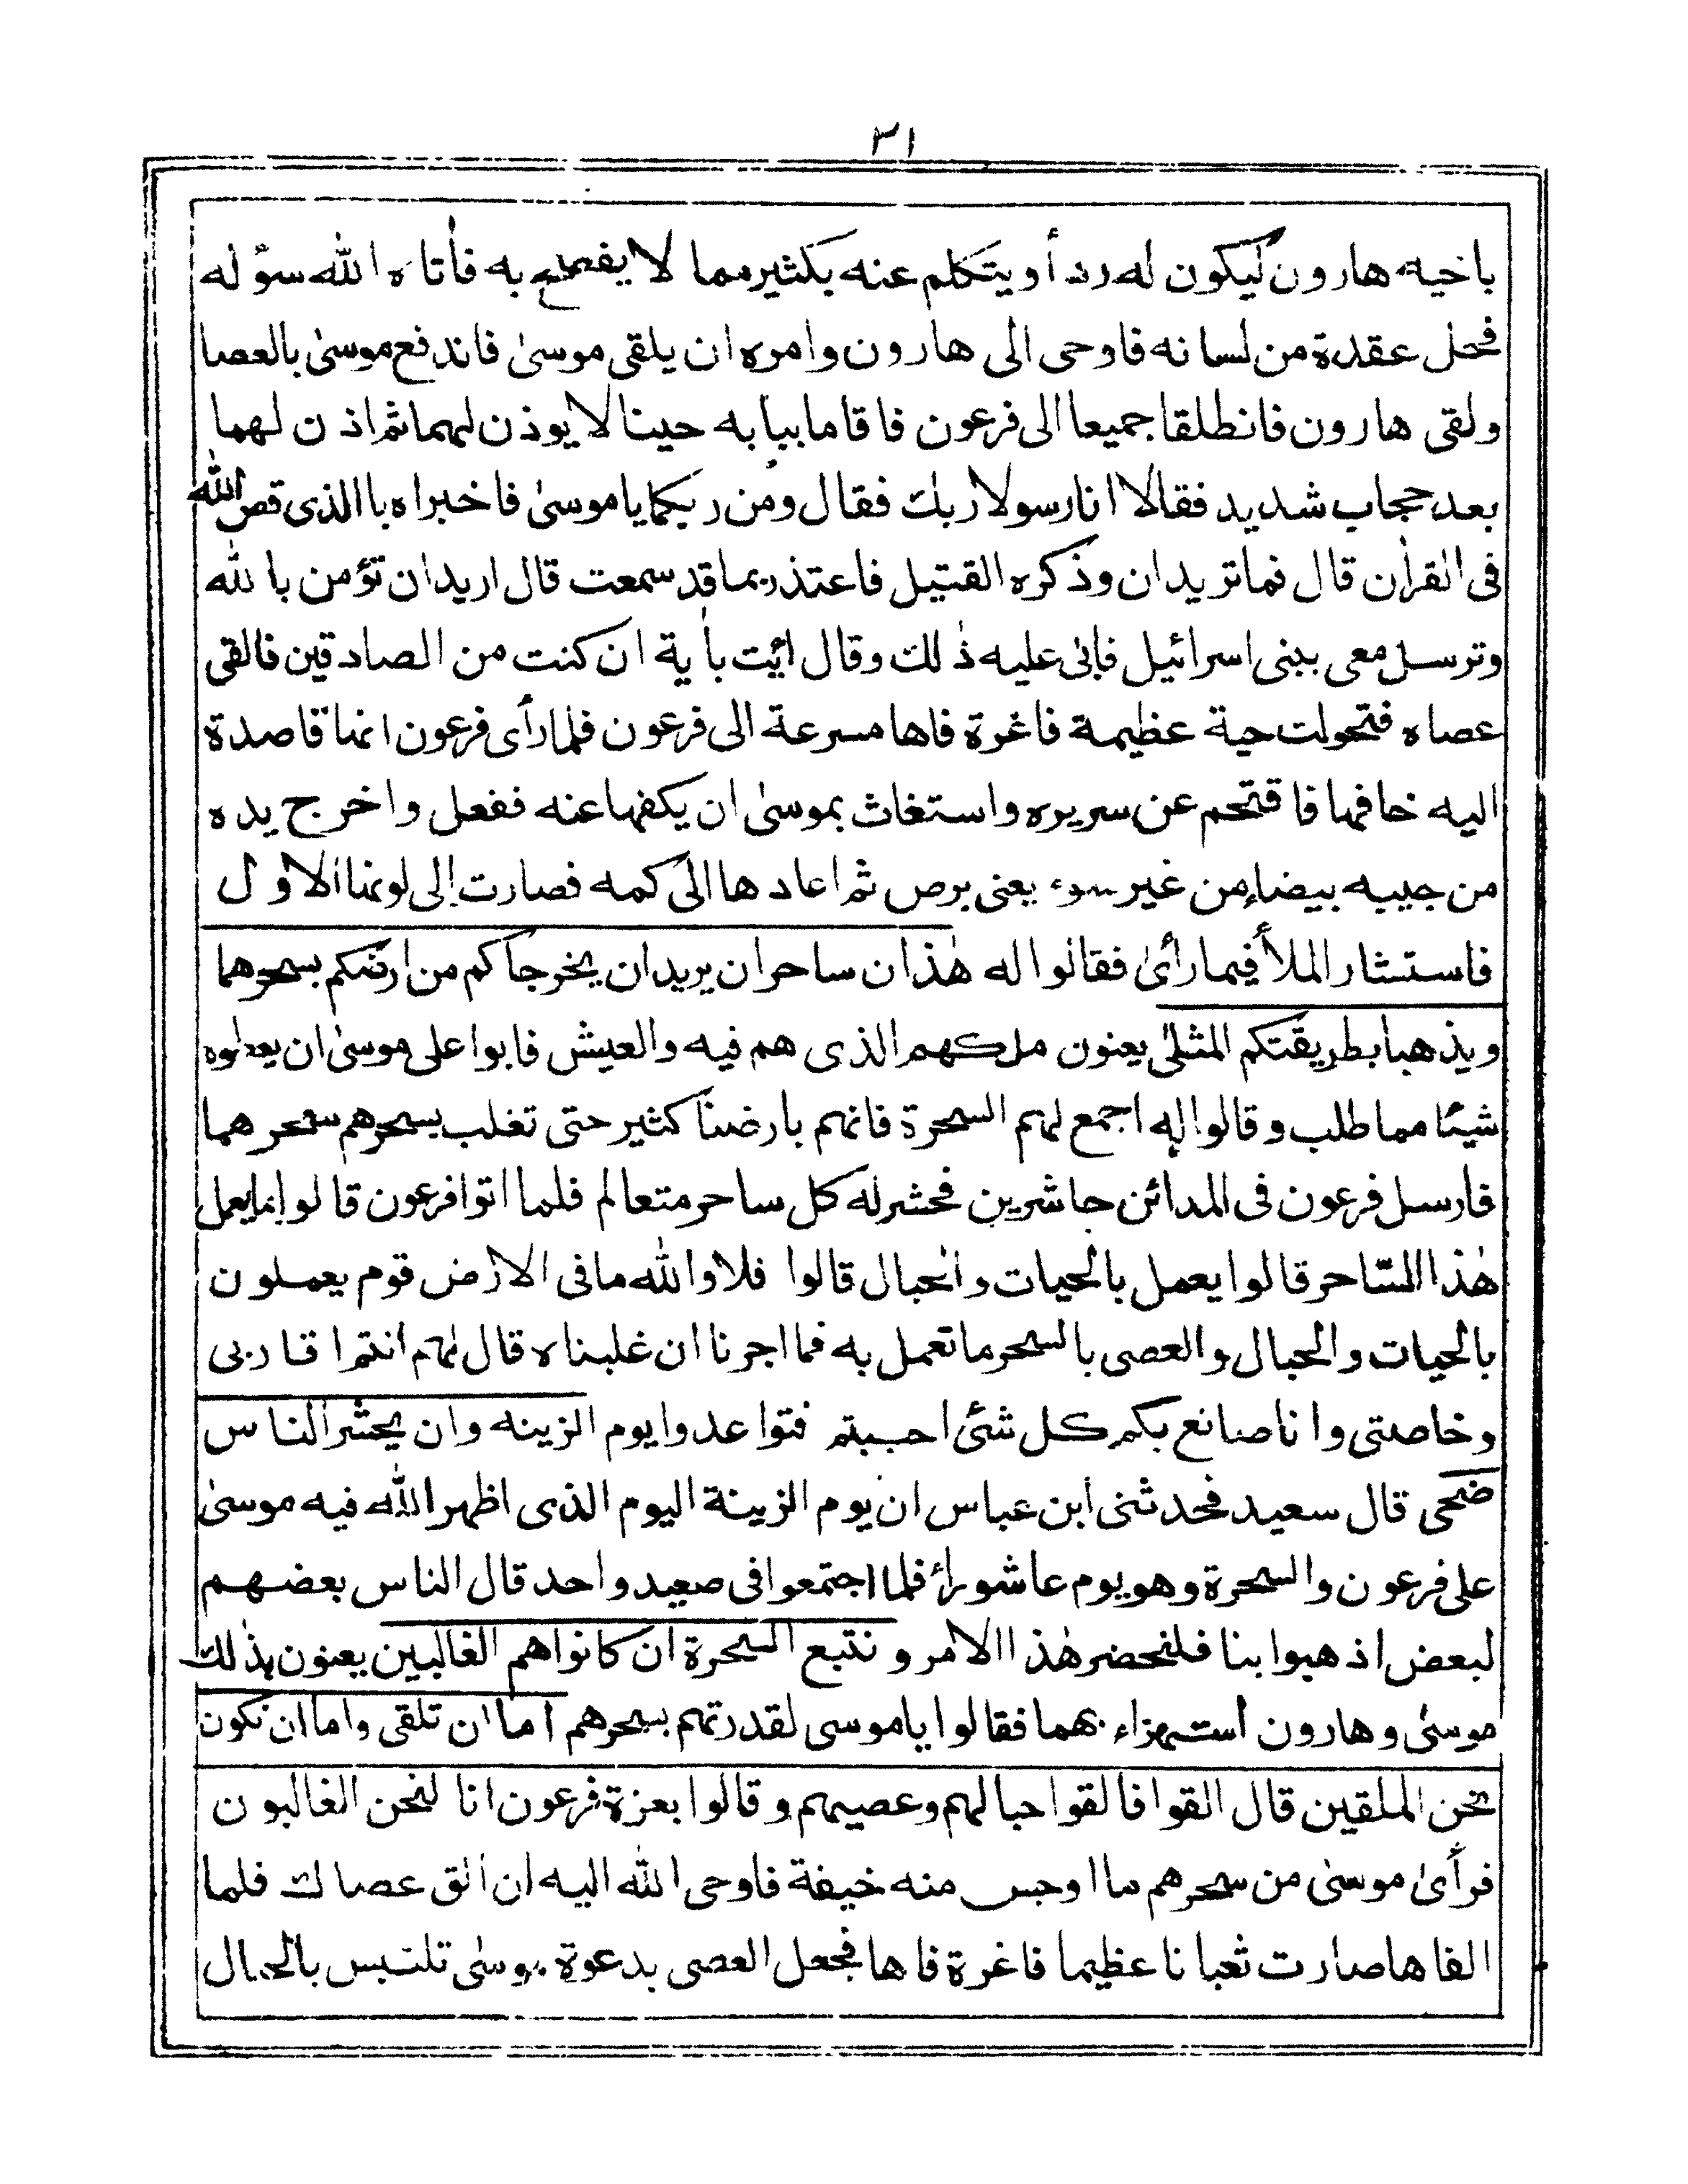 ٣١
باخيه هارون ليكون له ردءا ويتكلم عنه بكثير مما لا يفصح به فأتاه الله سؤله
فحل عقدة من لسانه فاوحى الى هارون وامره ان يلقى موسىٰ فاندفع موسىٰ بالعصا
ولقى هارون فانطلقا جميعا الى فرعون فاقاما ببابه حينا لا يوذن لهما ثم اذن لهما
بعد حجاب شديد فقالا انا رسولا ربك فقال ومن ربكما يا موسىٰ فاخبراه باالذى قص الله
فى القرأن قال فما تريدان وذكره القتيل فاعتذر بما قد سمعت قال اريد ان تؤمن بالله
وترسل معى ببنى اسرائيل فابىٰ عليه ذٰلك وقال ائيت بأية ان كنت من الصادقين فالقى
عصاه فتحولت حية عظيمة فاغرة فاها مسرعة الى فرعون فلما رأى فرعون انها قاصدة
اليه خافها فاقتحم عن سريره واستغاث بموسىٰ ان يكفها عنه ففعل واخرج يده
من جيبه بيضاء من غير سوء يعنى برص ثم اعادها الى كمه فصارت إلى لونها الاول
فاستشار الملأ فيما رأىٰ فقالوا له هٰذان ساحران يريدان يخرجاكم من ارضكم بسحرهما
ويذهبا بطريقتكم المثلىٰ يعنون ملكهم الذى هم فيه والعيش فابوا على موسىٰ ان يعطوه
شيئا مما طلب وقالوا له اجمع لهم السحرة فانهم بارضنا كثير حتى تغلب بسحرهم سحرهما
فارسل فرعون فى المدائن حاشرين فحشر له كل ساحر متعالم فلما اتوا فرعون قالوا بما يعمل
هٰذا السّاحر قالوا يعمل بالحيات والحبال قالوا فلا والله ما فى الارض قوم يعملون
بالحيات والحبال والعصى بالسحر ما تعمل به فما اجرنا ان غلبناه قال لهم انتم اقاربى
وخاصتى وانا صانع بكم كل شئ احببتم فتواعدوا يوم الزينه وان يحشر الناس
ضحى قال سعيد فحدثنى ابن عباس ان يوم الزينة اليوم الذى اظهر الله فيه موسىٰ
على فرعون والسحرة وهو يوم عاشوراء فلما اجتمعوا فى صعيد واحد قال الناس بعضهم
لبعض اذهبوا بنا فلنحضر هٰذا الامر ونتبع السحرة ان كانوا هم الغالبين يعنون بذٰلك
موسىٰ وهارون استهزاء بهما فقالوا يا موسى لقدرتهم بسحرهم اما ان تلقى واما ان نكون
نحن الملقين قال القوا فالقوا حبالهم وعصيهم وقالوا بعزة فرعون انا لنحن الغالبون
فرأىٰ موسىٰ من سحرهم ما اوجس منه خيفة فاوحى الله اليه ان الق عصاك فلما
القاها صارت ثعبانا عظيما فاغرة فاها فجعل العصى بدعوة موسىٰ تلتبس بالحبال